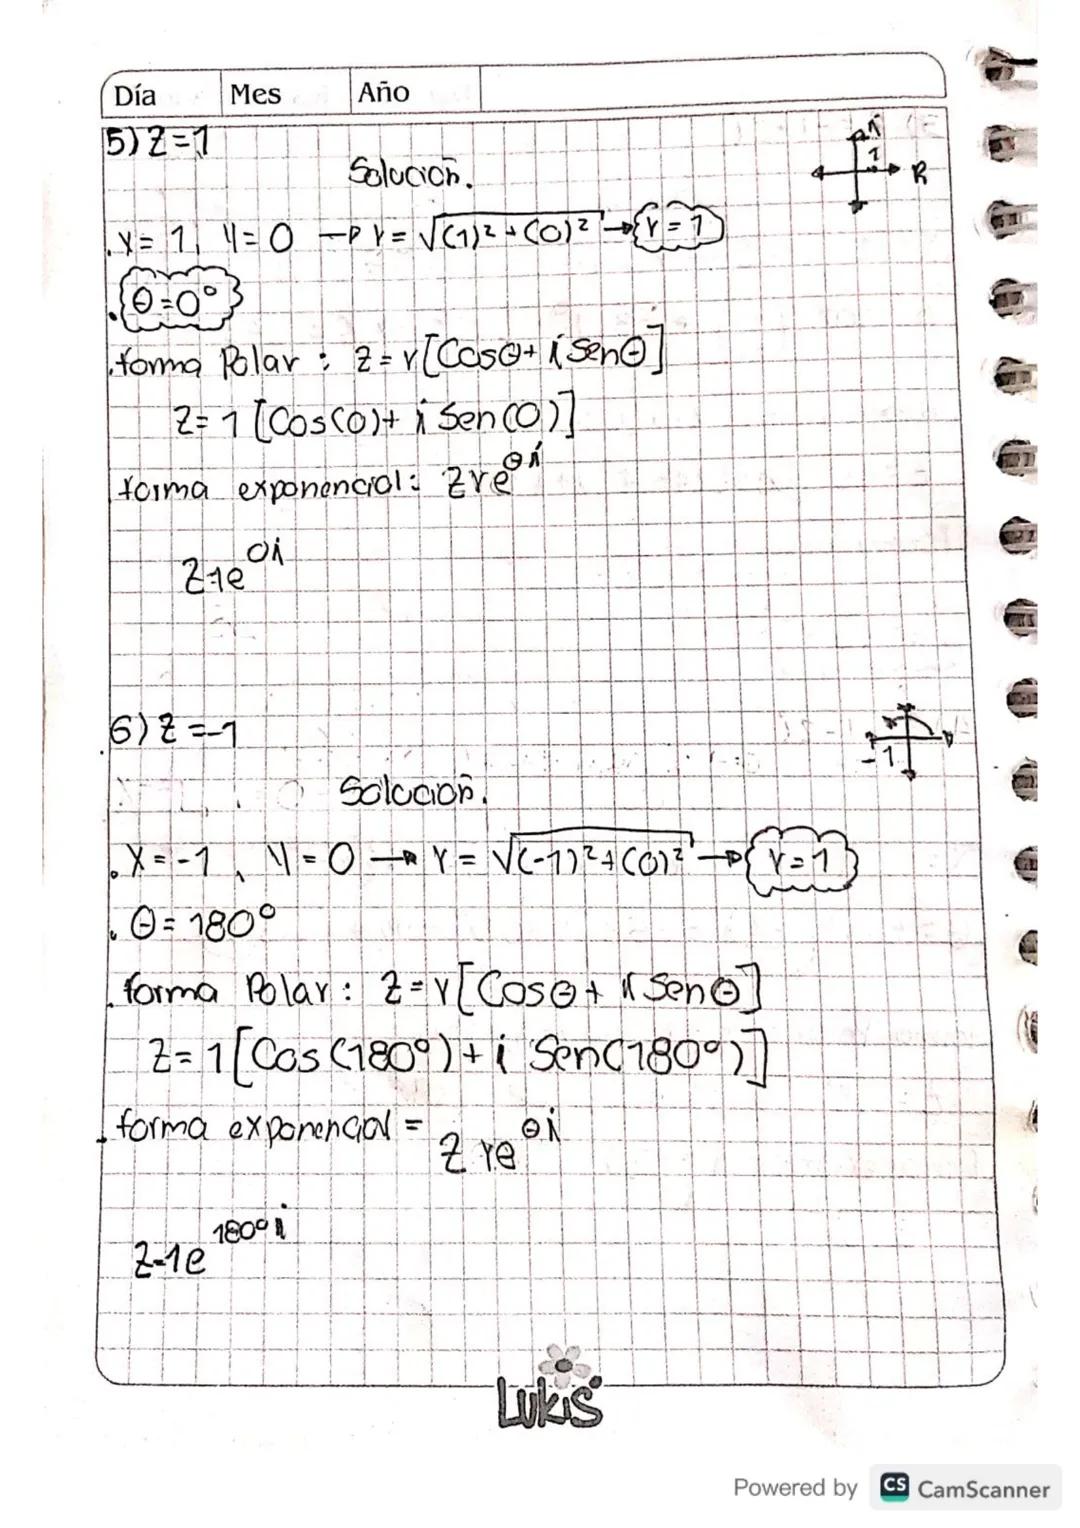 Día Mes Año
5) Z=1
Solución.
i
1
R
.X = 1, Y = 0 → r = √(1)² + (0)² → r = 1
.θ=0°
.forma Polar : Z = r[Cosθ + i Senθ]
Z = 1 [Cos(0) + i Sen(0)]
forma exponencial: Z re^θi
Z=1e^0i
6) Z = -1
-1
Solución.
.X = -1, Y = 0 → r = √(-1)² + (0)² → r = 1
. θ = 180°
.forma Polar : Z = r[Cosθ + i Senθ]
Z = 1[Cos(180°) + i Sen(180°)]
.forma exponencial = Z re^θi
Z=1e^180°i
Lukis
Powered by CS CamScanner